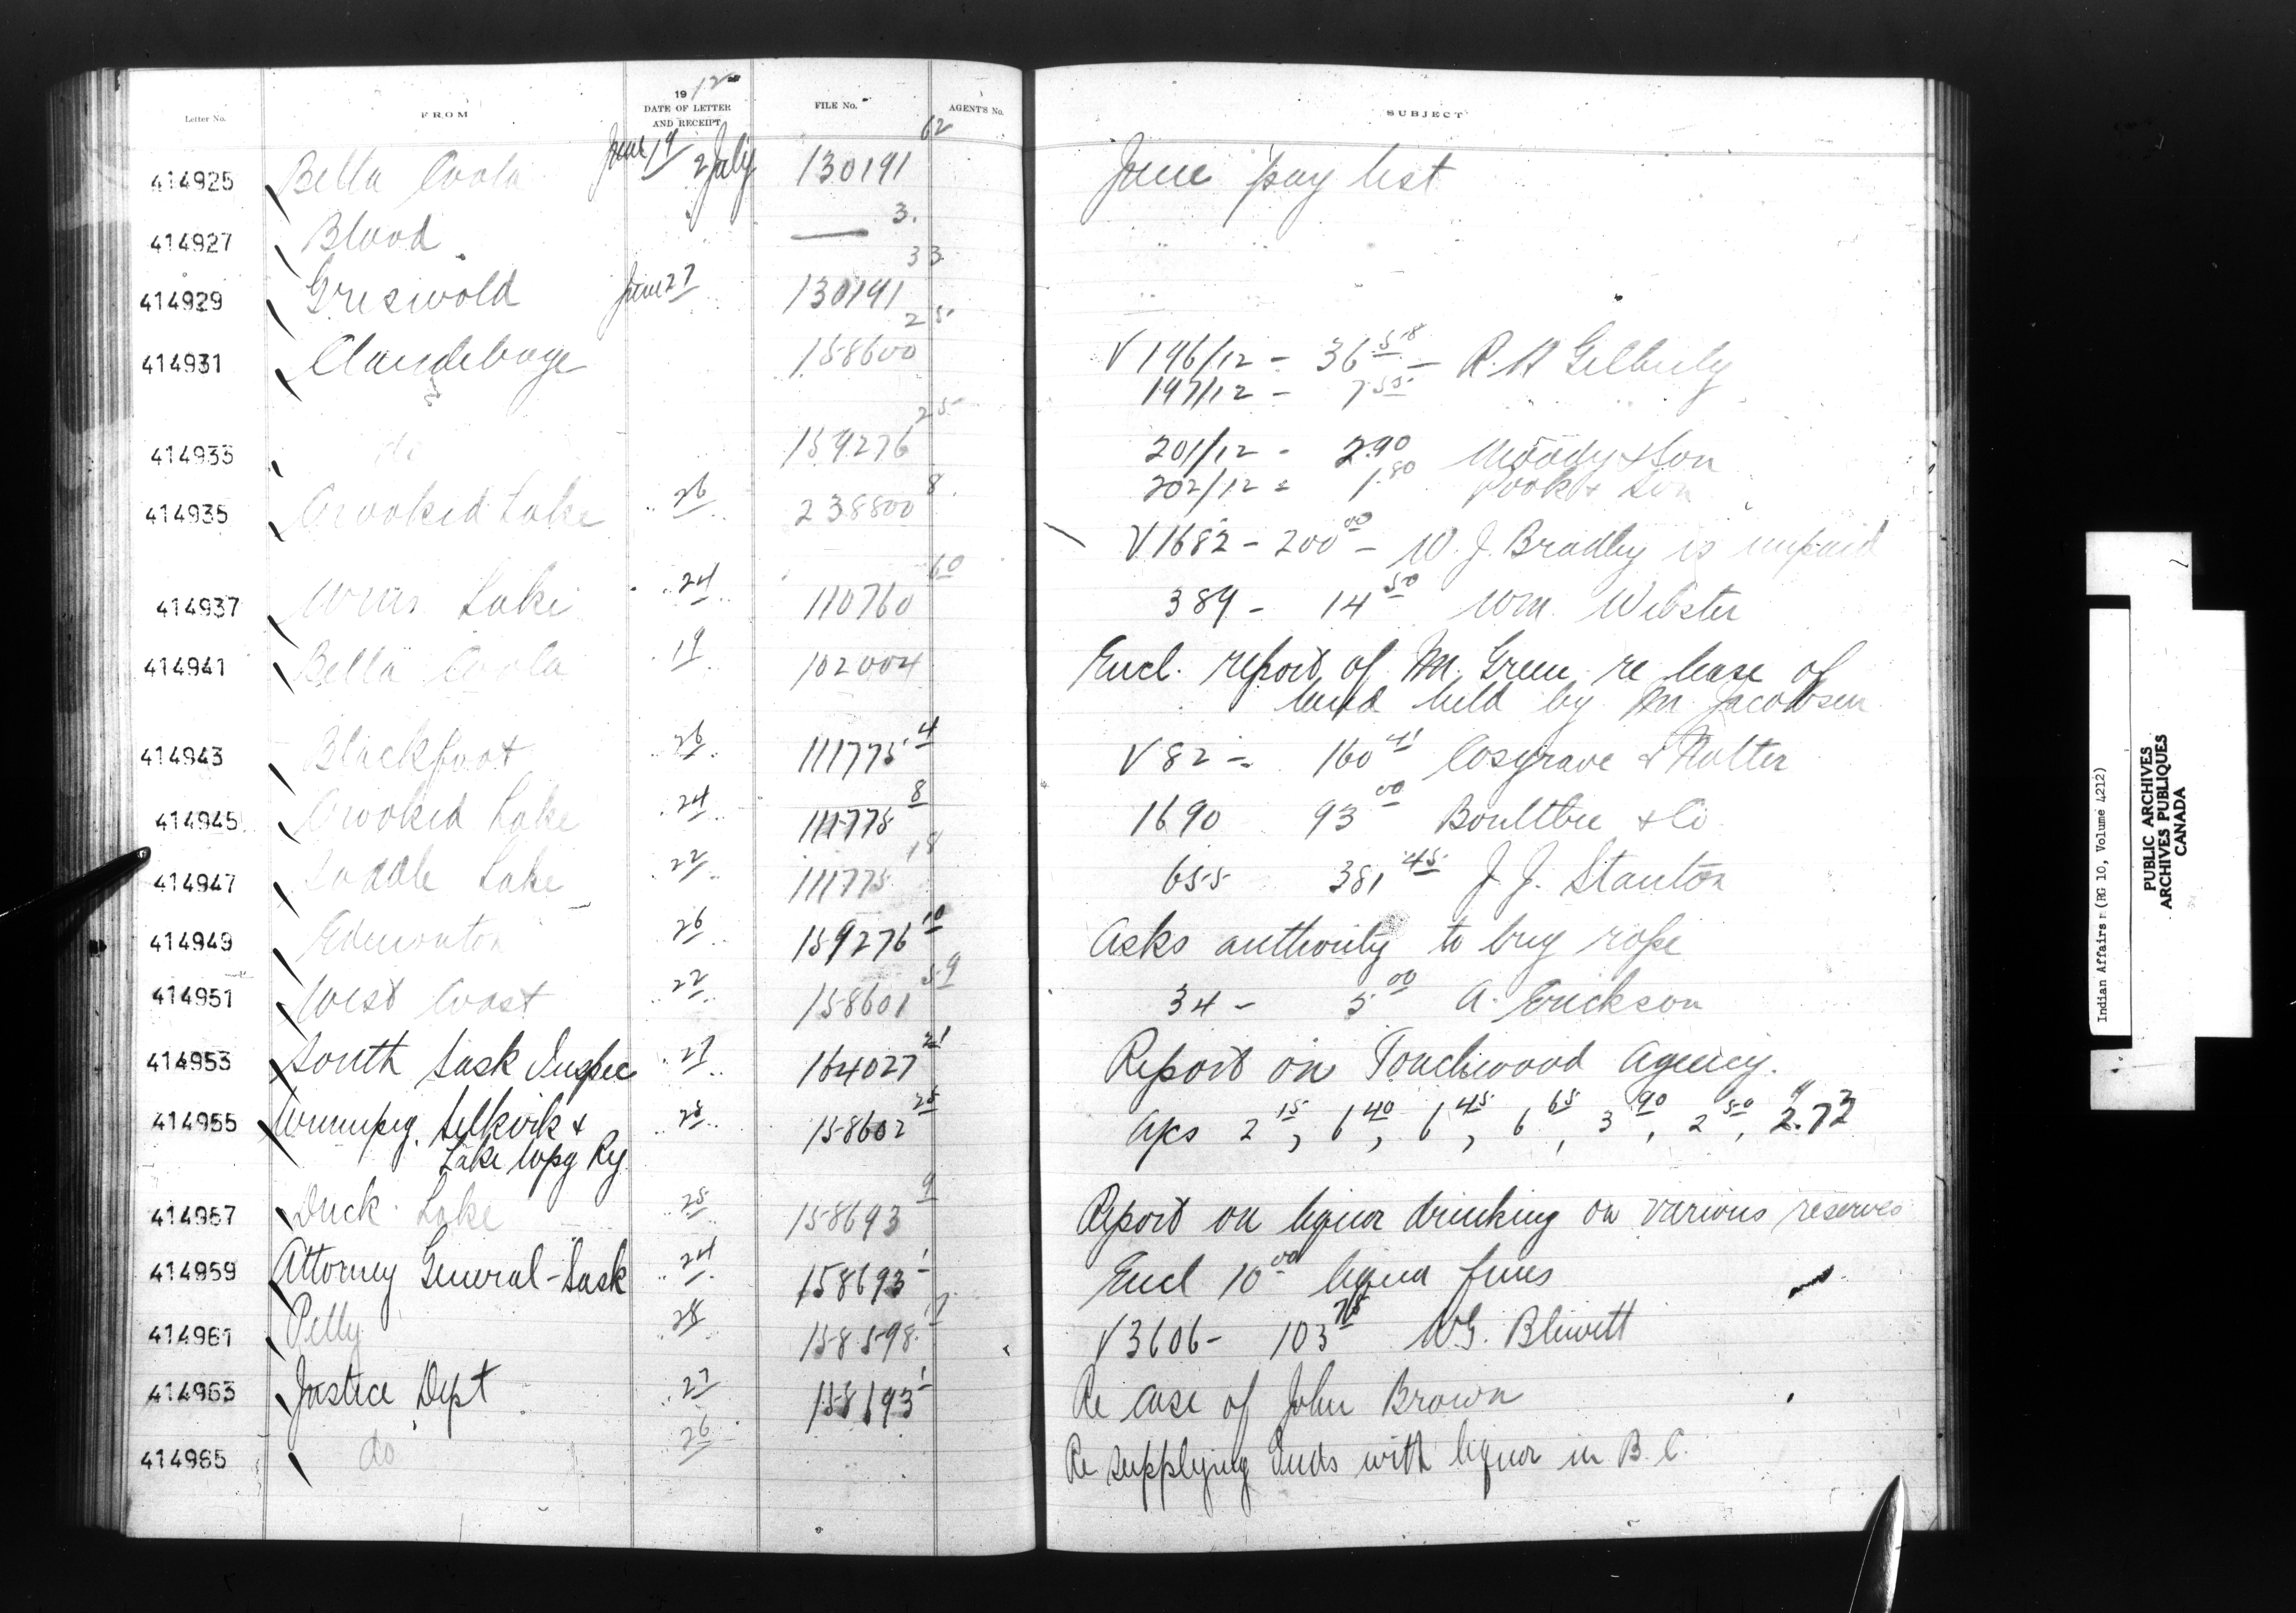 Letter No. FROM 1912 DATE OF LETTER AND RECEIPT FILE No. AGENT'S No. SUBJECT
414925 Bella Coola June 19 2 July 130191 62 June pay list
414927 Blood " — 3. " "
414929 Griswold June 27 130191 33 " "
414931 Clandeboye 158600 25 V 196/12 - 36 58 - R. H
197/12 - 7.55
414933 do 159276 25 201/12 - 2.90 Moody & Son
202/12 = 1.80 Pook & Son
414935 Crooked Lake .. 26 .. 238800 8. V 1682 - 200 00 - W. J. Bradley is unpaid
414937 Wms Lake .. 24 .. 110760 60 389 - 14 50 Wm. Webster
414941 Bella Coola . 19 . 102004 Encl. report of M. Green re lease of
land held by M Jacobsen
414943 Blackfoot .. 26 .. 111775 4 V 82 - 160 41 Cosgrave & Nolter
414945 Crooked Lake .. 24 .. 111775 8 1690 93 00 Boultbee & Co
414947 Saddle Lake .. 22 .. 111775 18 655 381 45 J. J. Stanton
414949 Edmonton .. 26 .. 159276 10 Asks authority to buy rope
414951 West Coast .. 22 .. 158601 59 34 - 5 00 A. Erickson
414953 South Sask Inspec .. 27 .. 164027 21 Report on Touchwood Agency.
414955 Winnipeg, Selkirk & .. 25 .. 158602 25 A/cs 2 15, 6 40, 6 45, 6 65, 3 90, 2 50, 2.72
Lake Wpg Ry
414957 Duck Lake .. 25 .. 158693 9 Report on liquor drinking on various reserves
414959 Attorney General - Sask .. 24 .. 158693 1 Encl 10 00 liquor fines
414961 Pelly .. 28 .. 158598 7 V 3606 - 103 75 W.G. Blewett
414963 Justice Dept .. 27 158693 1 Re case of John Brown
414965 do 26 Re supplying Inds with liquor in B.C.
Indian Affairs (RG 10, Volume 4212)
PUBLIC ARCHIVES
ARCHIVES PUBLIQUES
CANADA